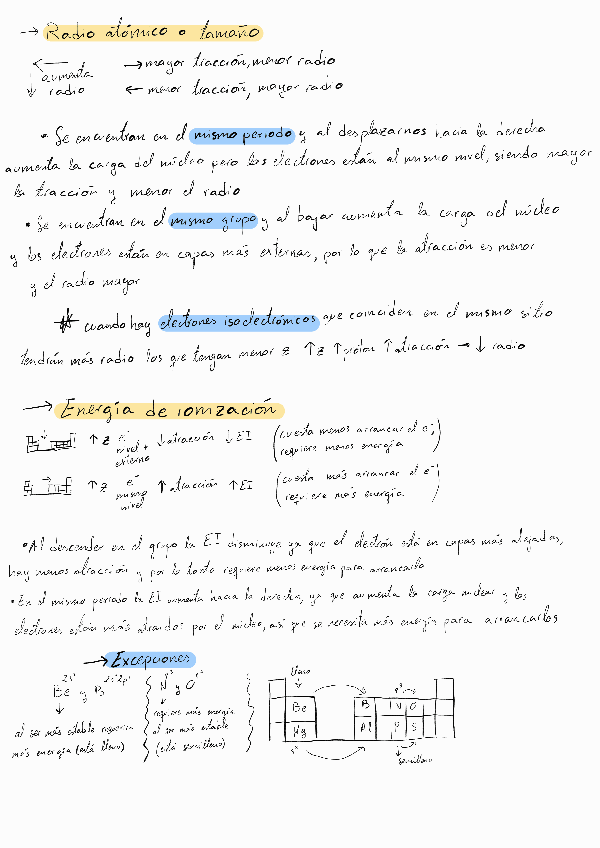 → Radio atómico o tamaño
← → mayor tracción, menor radio
aumenta
↓ radio ← menor tracción, mayor radio
• Se encuentran en el mismo periodo y al desplazarnos hacia la derecha
aumenta la carga del núcleo pero los electrones están al mismo nivel, siendo mayor
la tracción y menor el radio
• Se encuentran en el mismo grupo y al bajar aumenta la carga del núcleo
y los electrones están en capas más externas, por lo que la atracción es menor
y el radio mayor
* cuando hay electrones isoelectrónicos que coinciden en el mismo sitio
tendrán más radio los que tengan menor z ↑z ↑protón ↑atracción → ↓ radio
→ Energía de ionización
↑ z e⁻ nivel + externo ↓ atracción ↓ EI (cuesta menos arrancar el e⁻;
requiere menos energía)
↑ z e⁻ mismo nivel ↑ atracción ↑ EI (cuesta más arrancar el e⁻
requiere más energía)
• Al descender en el grupo la EI disminuye ya que el electrón está en capas más alejadas,
hay menos atracción y por lo tanto requiere menos energía para arrancarlo
• En el mismo periodo la EI aumenta hacia la derecha, ya que aumenta la carga nuclear y los
electrones están más atraídos por el núcleo, así que se necesita más energía para arrancarlos
→ Excepciones
Be 2s² y B 2s²2p¹
↓
al ser más estable requiere
más energía (está lleno)
N p³ y O p⁴
↓
requiere más energía
al ser más estable
(está semilleno)
lleno
↓
Be B N O
Mg Al P S
s²
semilleno